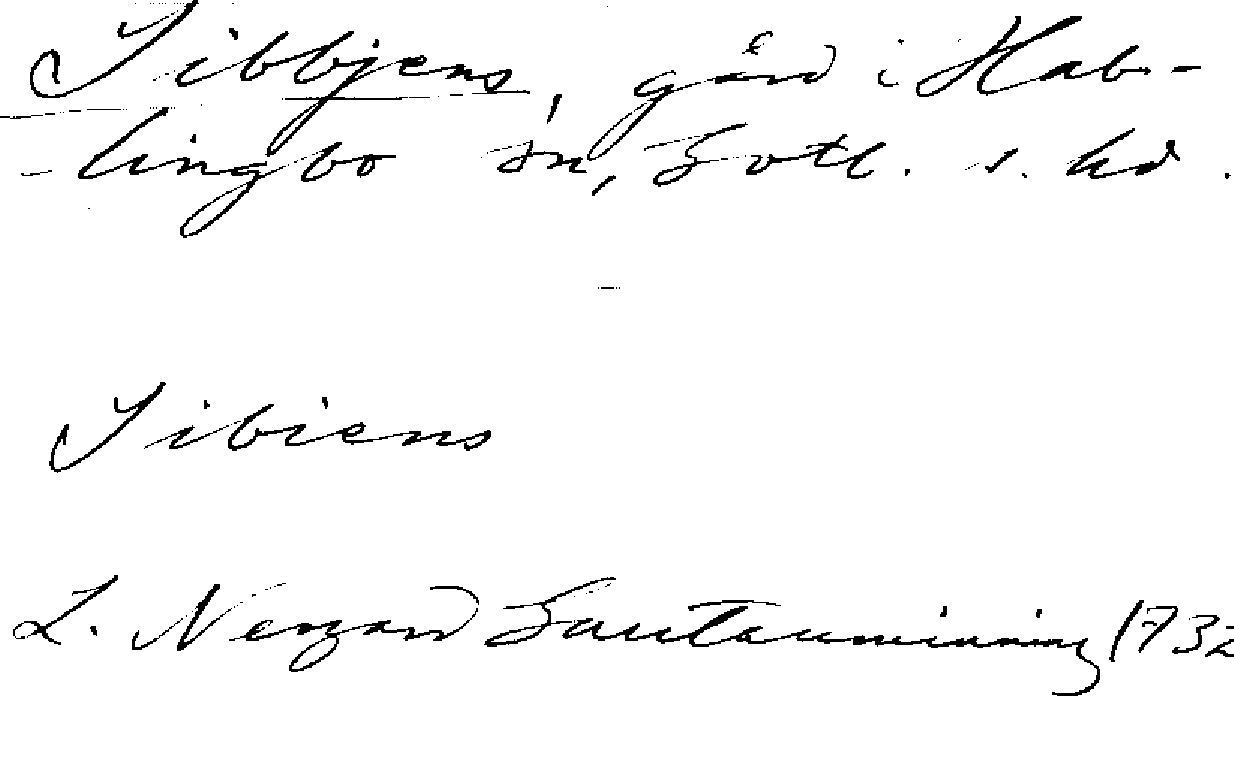 Sibbjens, gård i Hab-
-lingbo sn, Gotl. s. hd.
Sibiens
L. Nergard Gautauminning 1732